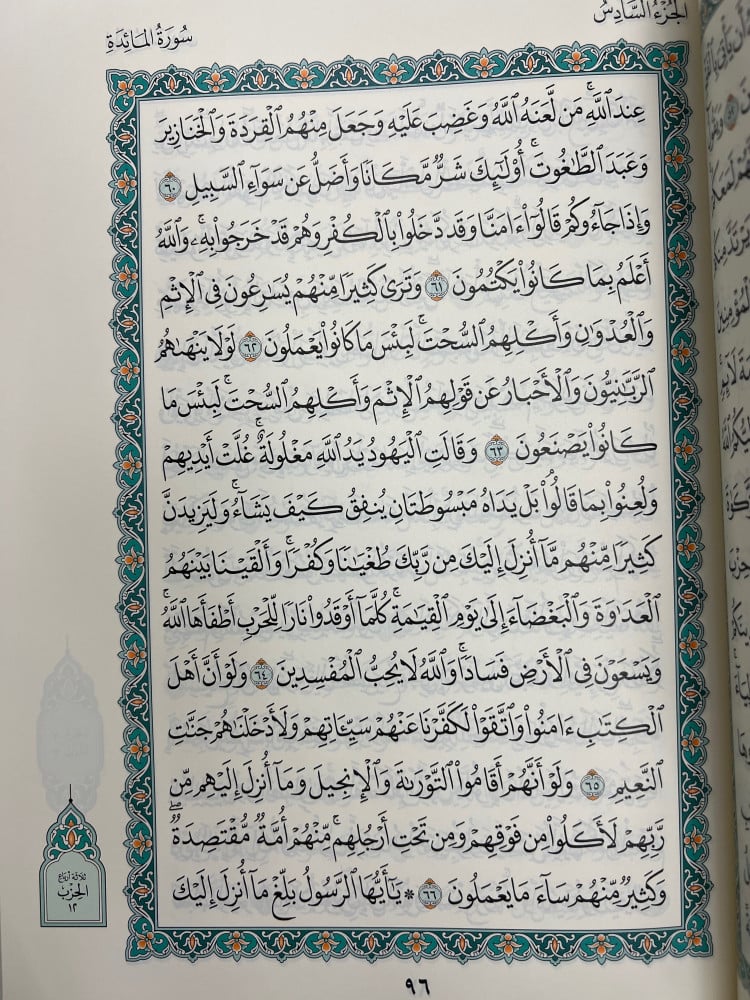 الجزء السادس
سورة المائدة
عِندَ ٱللَّهِۚ مَن لَّعَنَهُ ٱللَّهُ وَغَضِبَ عَلَيْهِ وَجَعَلَ مِنْهُمُ ٱلْقِرَدَةَ وَٱلْخَنَازِيرَ
وَعَبَدَ ٱلطَّٰغُوتَۚ أُوْلَٰٓئِكَ شَرٌّ مَّكَانًا وَأَضَلُّ عَن سَوَآءِ ٱلسَّبِيلِ ٦٠
وَإِذَا جَآءُوكُمْ قَالُوٓاْ ءَامَنَّا وَقَد دَّخَلُواْ بِٱلْكُفْرِ وَهُمْ قَدْ خَرَجُواْ بِهِۦۚ وَٱللَّهُ
أَعْلَمُ بِمَا كَانُواْ يَكْتُمُونَ ٦١ وَتَرَىٰ كَثِيرًا مِّنْهُمْ يُسَٰرِعُونَ فِى ٱلْإِثْمِ
وَٱلْعُدْوَٰنِ وَأَكْلِهِمُ ٱلسُّحْتَۚ لَبِئْسَ مَا كَانُواْ يَعْمَلُونَ ٦٢ لَوْلَا يَنْهَىٰهُمُ
ٱلرَّبَّٰنِيُّونَ وَٱلْأَحْبَارُ عَن قَوْلِهِمُ ٱلْإِثْمَ وَأَكْلِهِمُ ٱلسُّحْتَۚ لَبِئْسَ مَا
كَانُواْ يَصْنَعُونَ ٦٣ وَقَالَتِ ٱلْيَهُودُ يَدُ ٱللَّهِ مَغْلُولَةٌۚ غُلَّتْ أَيْدِيهِمْ
وَلُعِنُواْ بِمَا قَالُواْۘ بَلْ يَدَاهُ مَبْسُوطَتَانِ يُنفِقُ كَيْفَ يَشَآءُۚ وَلَيَزِيدَنَّ
كَثِيرًا مِّنْهُم مَّآ أُنزِلَ إِلَيْكَ مِن رَّبِّكَ طُغْيَٰنًا وَكُفْرًاۚ وَأَلْقَيْنَا بَيْنَهُمُ
ٱلْعَدَٰوَةَ وَٱلْبَغْضَآءَ إِلَىٰ يَوْمِ ٱلْقِيَٰمَةِۚ كُلَّمَآ أَوْقَدُواْ نَارًا لِّلْحَرْبِ أَطْفَأَهَا ٱللَّهُۚ
وَيَسْعَوْنَ فِى ٱلْأَرْضِ فَسَادًاۚ وَٱللَّهُ لَا يُحِبُّ ٱلْمُفْسِدِينَ ٦٤ وَلَوْ أَنَّ أَهْلَ
ٱلْكِتَٰبِ ءَامَنُواْ وَٱتَّقَوْاْ لَكَفَّرْنَا عَنْهُمْ سَيِّـَٔاتِهِمْ وَلَأَدْخَلْنَٰهُمْ جَنَّٰتِ
ٱلنَّعِيمِ ٦٥ وَلَوْ أَنَّهُمْ أَقَامُواْ ٱلتَّوْرَىٰةَ وَٱلْإِنجِيلَ وَمَآ أُنزِلَ إِلَيْهِم مِّن
رَّبِّهِمْ لَأَكَلُواْ مِن فَوْقِهِمْ وَمِن تَحْتِ أَرْجُلِهِمۚ مِّنْهُمْ أُمَّةٌ مُّقْتَصِدَةٌۖ
وَكَثِيرٌ مِّنْهُمْ سَآءَ مَا يَعْمَلُونَ ٦٦ * يَٰٓأَيُّهَا ٱلرَّسُولُ بَلِّغْ مَآ أُنزِلَ إِلَيْكَ
ثلاثة أرباع
الحزب
١٢
٩٦